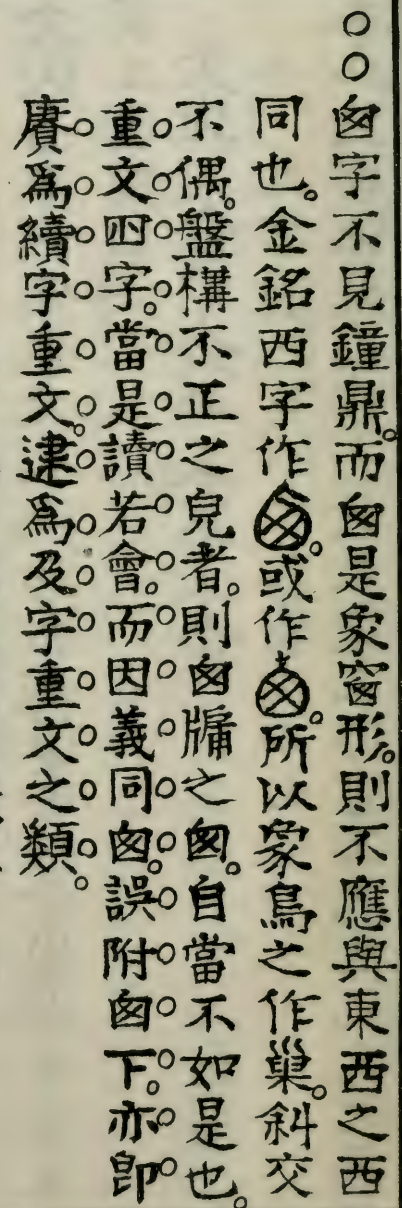 ○○囪字不見鐘鼎。而囪是象窗形。則不應與東西之西
同也。金銘西字作。或作。所以象鳥之作巢。斜交
不偶。盤構不正之皃者。則囪牖之囪。自當不如是也。
重文四字。當是讀若會。而因義同囪。誤附囪下。亦卽
賡爲續字重文。逮爲及字重文之類。